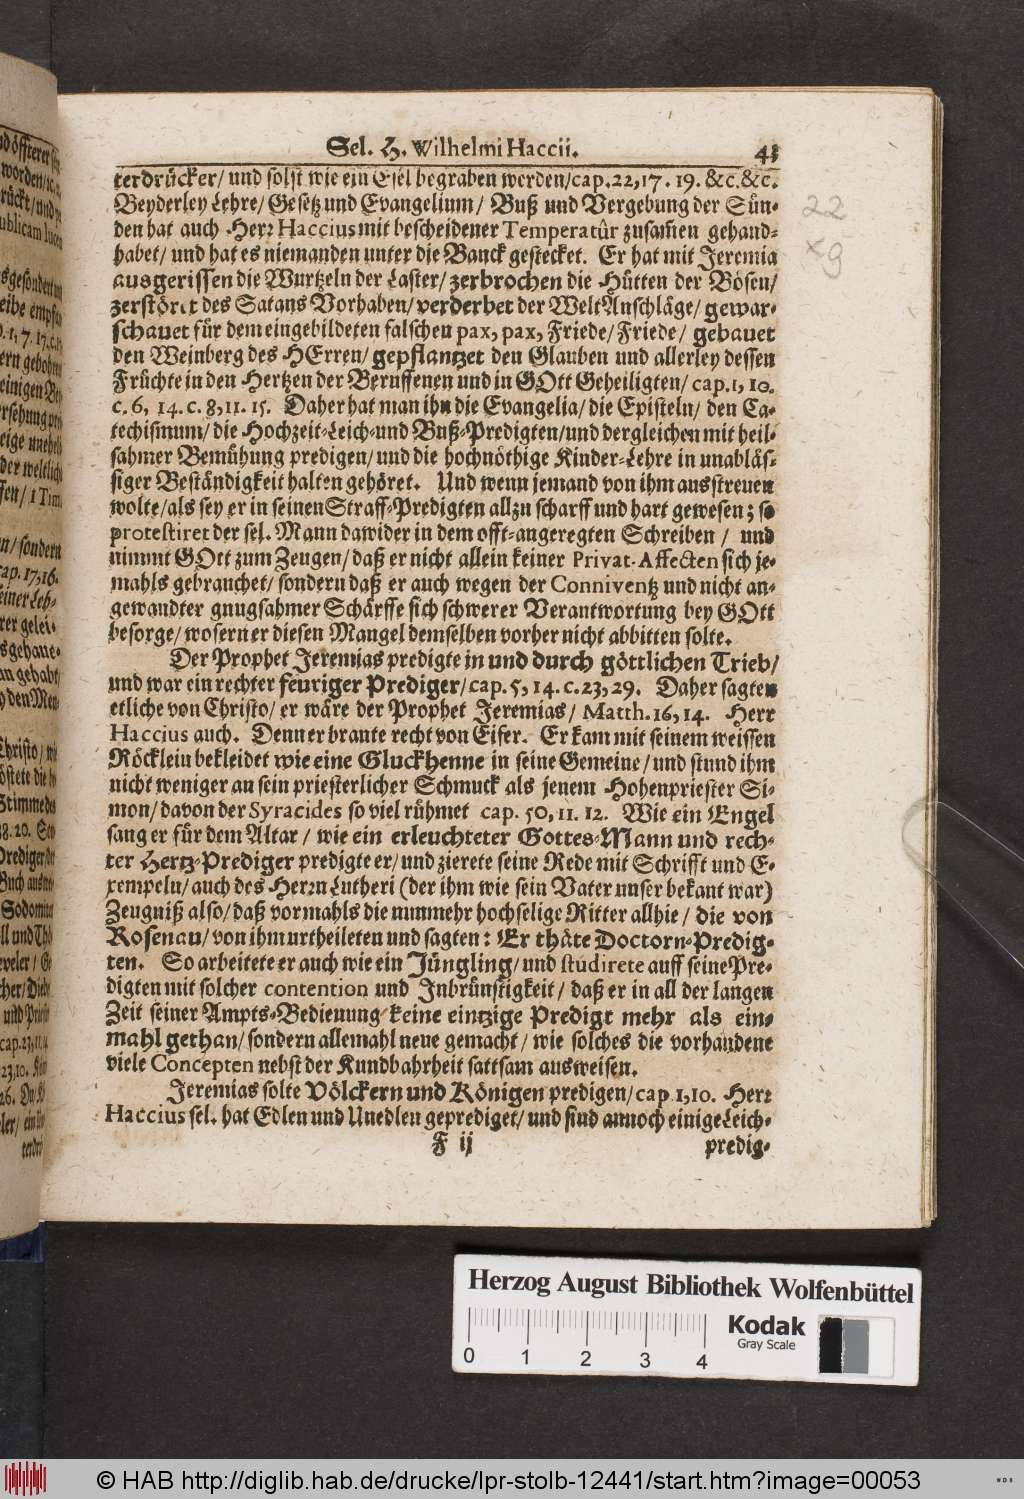 Sel. H. Wilhelmi Haccii. 43
terdrücker/ und solst wie ein Esel begraben werden/cap.22,17. 19. &c.&c.
Beyderley Lehre/ Gesetz und Evangelium/ Buß und Vergebung der Sün-
den hat auch Herr Haccius mit bescheidener Temperatùr zusam̃en gehand-
habet/ und hat es niemanden unter die Banck gestecket. Er hat mit Jeremia
ausgerissen die Wurtzeln der Laster/ zerbrochen die Hütten der Bösen/
zerstöret des Satans Vorhaben/ verderbet der Welt Anschläge/ gewar-
schauet für dem eingebildeten falschen pax, pax, Friede/ Friede/ gebauet
den Weinberg des HErren/ gepflantzet den Glauben und allerley dessen
Früchte in den Hertzen der Beruffenen und in GOtt Geheiligten/ cap.1, 10.
c. 6, 14. c. 8, 11. 15. Daher hat man ihn die Evangelia/ die Episteln/ den Ca-
techismum/ die Hochzeit-Leich-und Buß-Predigten/und dergleichen mit heil-
sahmer Bemühung predigen/ und die hochnöthige Kinder-Lehre in unabläs-
siger Beständigkeit halten gehöret. Und wenn jemand von ihm ausstreuen
wolte/als sey er in seinen Straff-Predigten allzu scharff und hart gewesen; so
protestiret der sel. Mann dawider in dem offt-angeregten Schreiben / und
nimmt GOtt zum Zeugen/ daß er nicht allein keiner Privat-Affecten sich je-
mahls gebrauchet/ sondern daß er auch wegen der Conniventz und nicht an-
gewandter gnugsahmer Schärffe sich schwerer Verantwortung bey GOtt
besorge/ wofern er diesen Mangel demselben vorher nicht abbitten solte.
Der Prophet Jeremias predigte in und durch göttlichen Trieb/
und war ein rechter feuriger Prediger/ cap. 5, 14. c. 23, 29. Daher sagten
etliche von Christo/ er wäre der Prophet Jeremias/ Matth. 16, 14. Herr
Haccius auch. Denn er brante recht von Eifer. Er kam mit seinem weissen
Röcklein bekleidet wie eine Gluckhenne in seine Gemeine/ und stund ihm
nicht weniger an sein priesterlicher Schmuck als jenem Hohenpriester Si-
mon/ davon der Syracides so viel rühmet cap. 50, 11. 12. Wie ein Engel
sang er für dem Altar / wie ein erleuchteter Gottes-Mann und rech-
ter Hertz-Prediger predigte er/ und zierete seine Rede mit Schrifft und E-
xempeln/ auch des Herrn Lutheri (der ihm wie sein Vater unser bekant war)
Zeugniß also/ daß vormahls die nunmehr hochselige Ritter allhie/ die von
Rosenau/ von ihm urtheileten und sagten: Er thäte Doctorn-Predig-
ten. So arbeitete er auch wie ein Jüngling/ und stùdirete auff seine Pre-
digten mit solcher contention und Inbrünstigkeit/ daß er in all der langen
Zeit seiner Ampts-Bedienung keine eintzige Predigt mehr als ein-
mahl gethan/ sondern allemahl neue gemacht/ wie solches die vorhandene
viele Concepten nebst der Kundbahrheit sattsam ausweisen.
Jeremias solte Völckern und Königen predigen/ cap 1, 10. Herr
Haccius sel. hat Edlen und Unedlen geprediget/ und sind annoch einige Leich-
F ij predig-
22
x9
Herzog August Bibliothek Wolfenbüttel
0 1 2 3 4
Kodak
Gray Scale
© HAB http://diglib.hab.de/drucke/lpr-stolb-12441/start.htm?image=00053